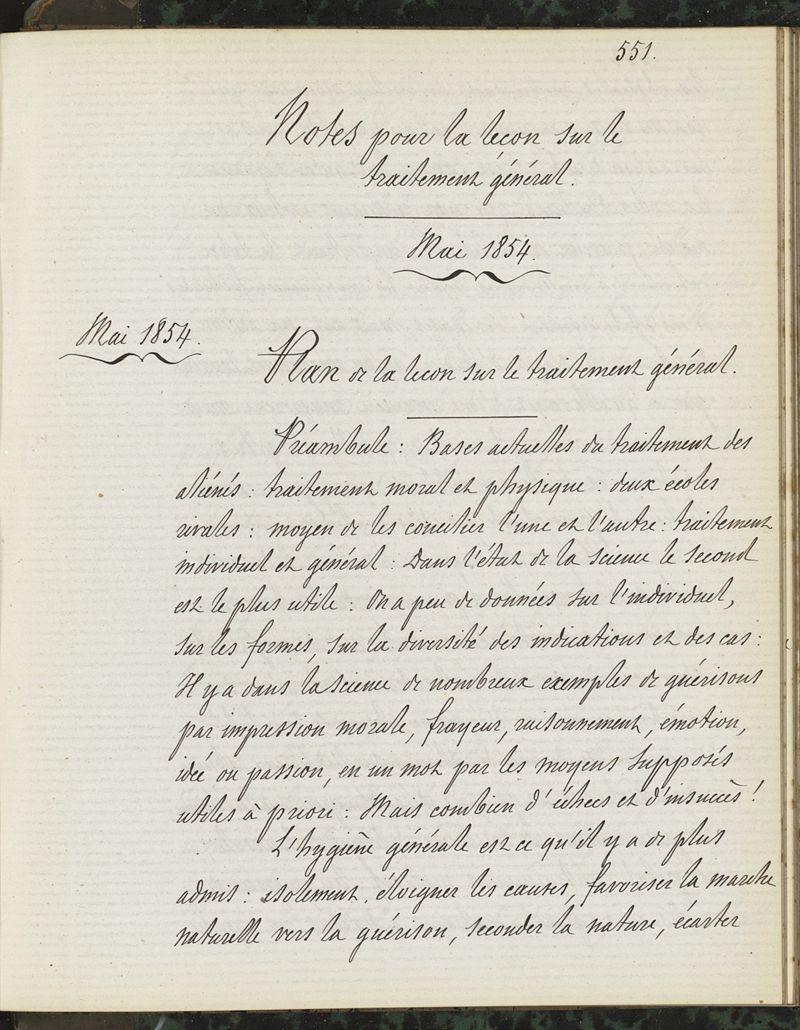 551.
Notes pour la leçon sur le
traitement général.
Mai 1854.
Mai 1854.
Plan de la lecon sur le traitement général.
Préambule : Bases actuelles du traitement des
aliénés : traitement moral et physique : deux écoles
rivales : moyen de les concilier l'une et l'autre : traitement
individuel et général : Dans l'état de la science le second
est le plus utile : On a peu de données sur l'individuel,
sur les formes, sur la diversité des indications et des cas :
Il y a dans la science de nombreux exemples de guérisons
par impression morale, frayeur, raisonnement, émotion,
idée ou passion, en un mot par les moyens supposés
utiles à priori : Mais combien d'échecs et d'insuccès !
L'hygiène générale est ce qu'il y a de plus
admis : isolement, éloigner les causes, favoriser la marche
naturelle vers la guérison, seconder la nature, écarter